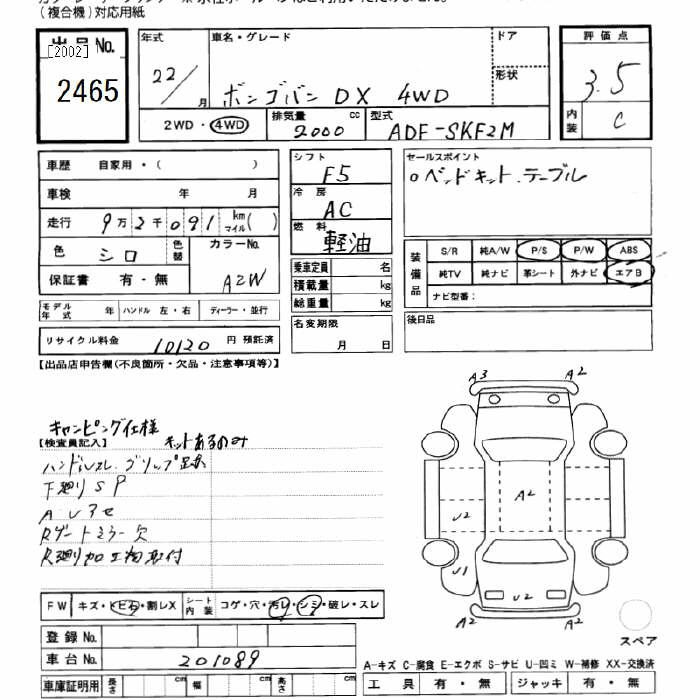 （複合機）対応用紙
出品No.
[2002]
2465
年式 22/ 月
車名・グレード ボンゴバン DX 4WD
ドア
形状
2WD・4WD 排気量 2000 cc 型式 ADF-SKF2M
評価点
3.5
内装 C
車歴 自家用・( )
車検 年 月
走行 9万2千091 km マイル( )
色 シロ 色替 カラーNo. A2W
保証書 有・無
モデル年式 年 ハンドル 左・右 ディーラー・並行
リサイクル料金 10120 円 預託済
シフト F5
冷房 AC
燃料 軽油
乗車定員 名
積載量 kg
総重量 kg
名変期限
月 日
セールスポイント
○ベッドキット.テーブル
装備品
S/R 純A/W P/S P/W ABS
純TV 純ナビ 革シート 外ナビ エアB
ナビ型番：
後日品
【出品店申告欄(不良箇所・欠品・注意事項等)】
キャンピング仕様
キットあるのみ
【検査員記入】
ハンドルスレ.グリップ
下廻りSP
A.Uアセ
Rゲートミラー欠
R廻り加工物取付
A3 A2
A2
U2
U1
U2
A2 A2
スペア
FW キズ・トビ石・割レX シート内装 コゲ・穴・汚レ・シミ・破レ・スレ
登録No.
車台No. 201089
車庫証明用 長さ cm 幅 cm 高さ cm
A-キズ C-腐食 E-エクボ S-サビ U-凹ミ W-補修 XX-交換済
工具 有・無 ジャッキ 有・無